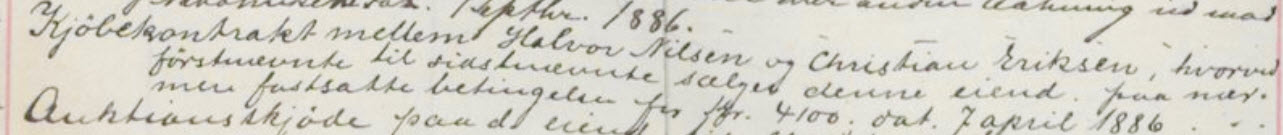 Septbr. 1886.
Kjöbekontrakt mellem Halvor Nilsen og Christian Eriksen, hvorved
förstnævnte til sidstnævnte sælger denne eiend. paa nær-
mere fastsatte betingelser for kr. 4100. dat. 7 april 1886
Auktionsskjöde paa d. eiend